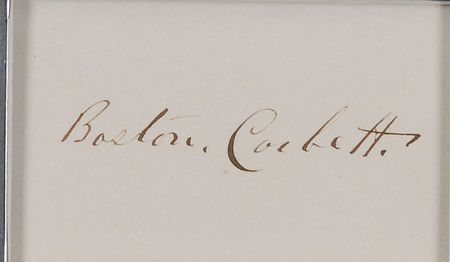 Boston. Corbett.